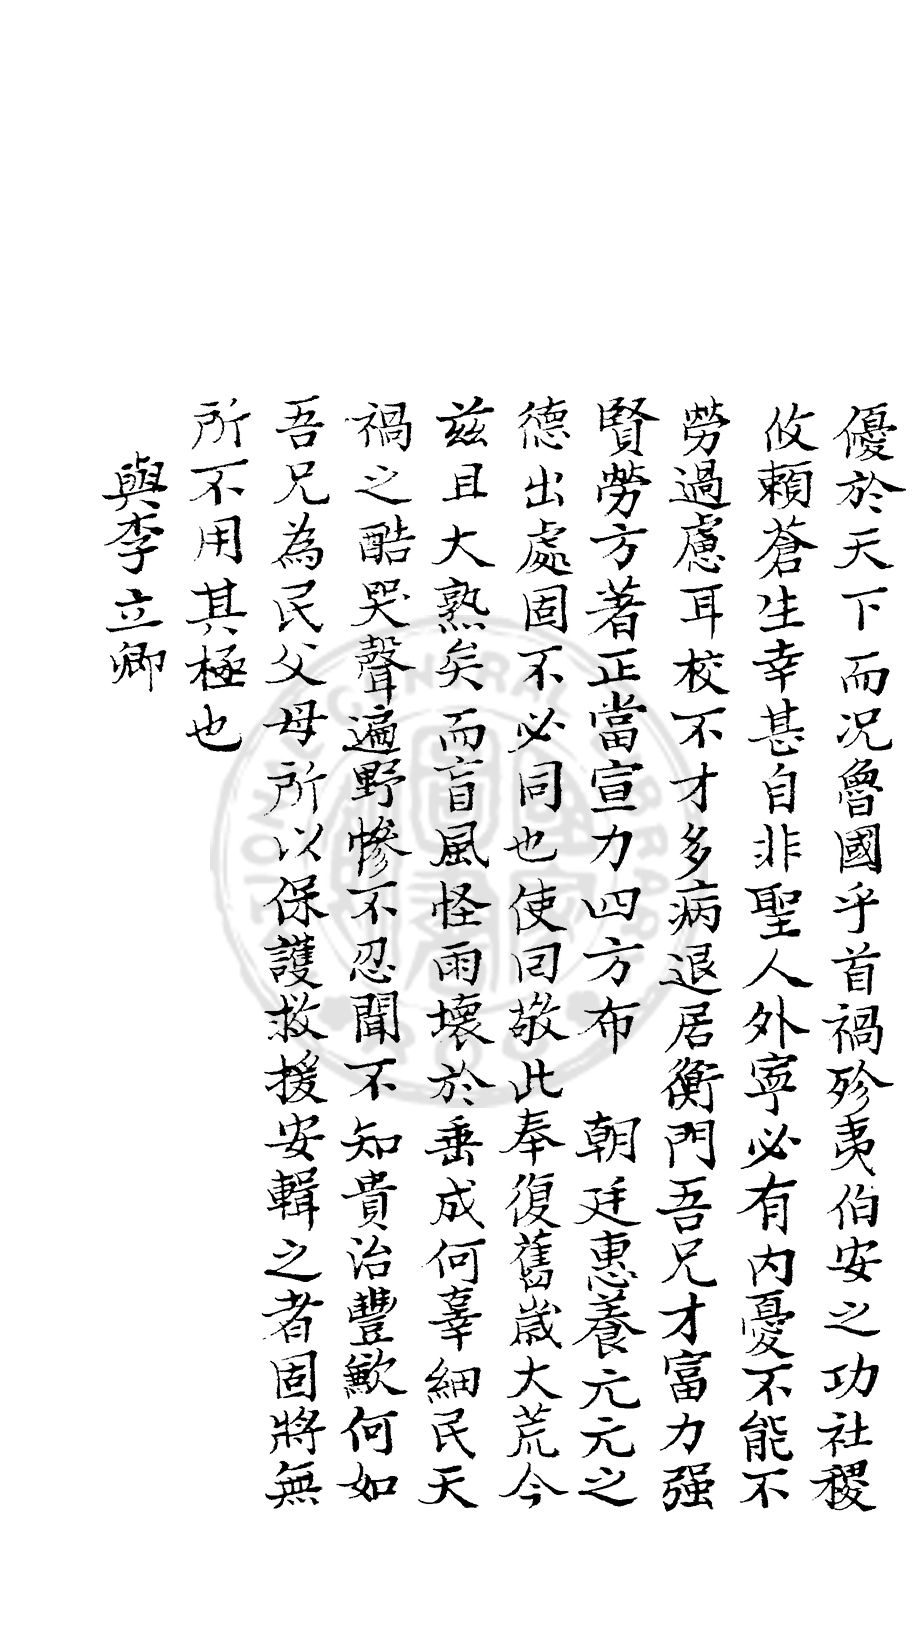 優於天下而况魯國乎首禍殄夷伯安之功社稷
攸賴蒼生幸甚自非聖人外寧必有内憂不能不
勞過慮耳校不才多病退居衡門吾兄才富力强
賢勞方著正當宣力四方布　朝廷惠養元元之
德出處固不必同也使囘敬此奉復舊歲大荒今
兹且大熟矣而盲風怪雨壞於垂成何辜細民天
禍之酷哭聲遍野慘不忍聞不知貴治豐歉何如
吾兄為民父母所以保護救援安輯之者固將無
所不用其極也
與李立卿